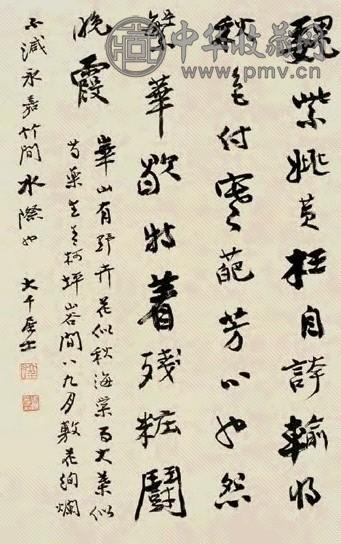 魏紫姚黄枉自誇輸将
秋色付寒葩芳心也怨
繁華歇特着殘粧鬪
晚霞
華山有野卉花似秋海棠而大葉似
芍藥生青柯坪山谷間八九月敷花絢爛
不減永嘉竹間水際也 大千居士
中华收藏网
www.pmv.cn